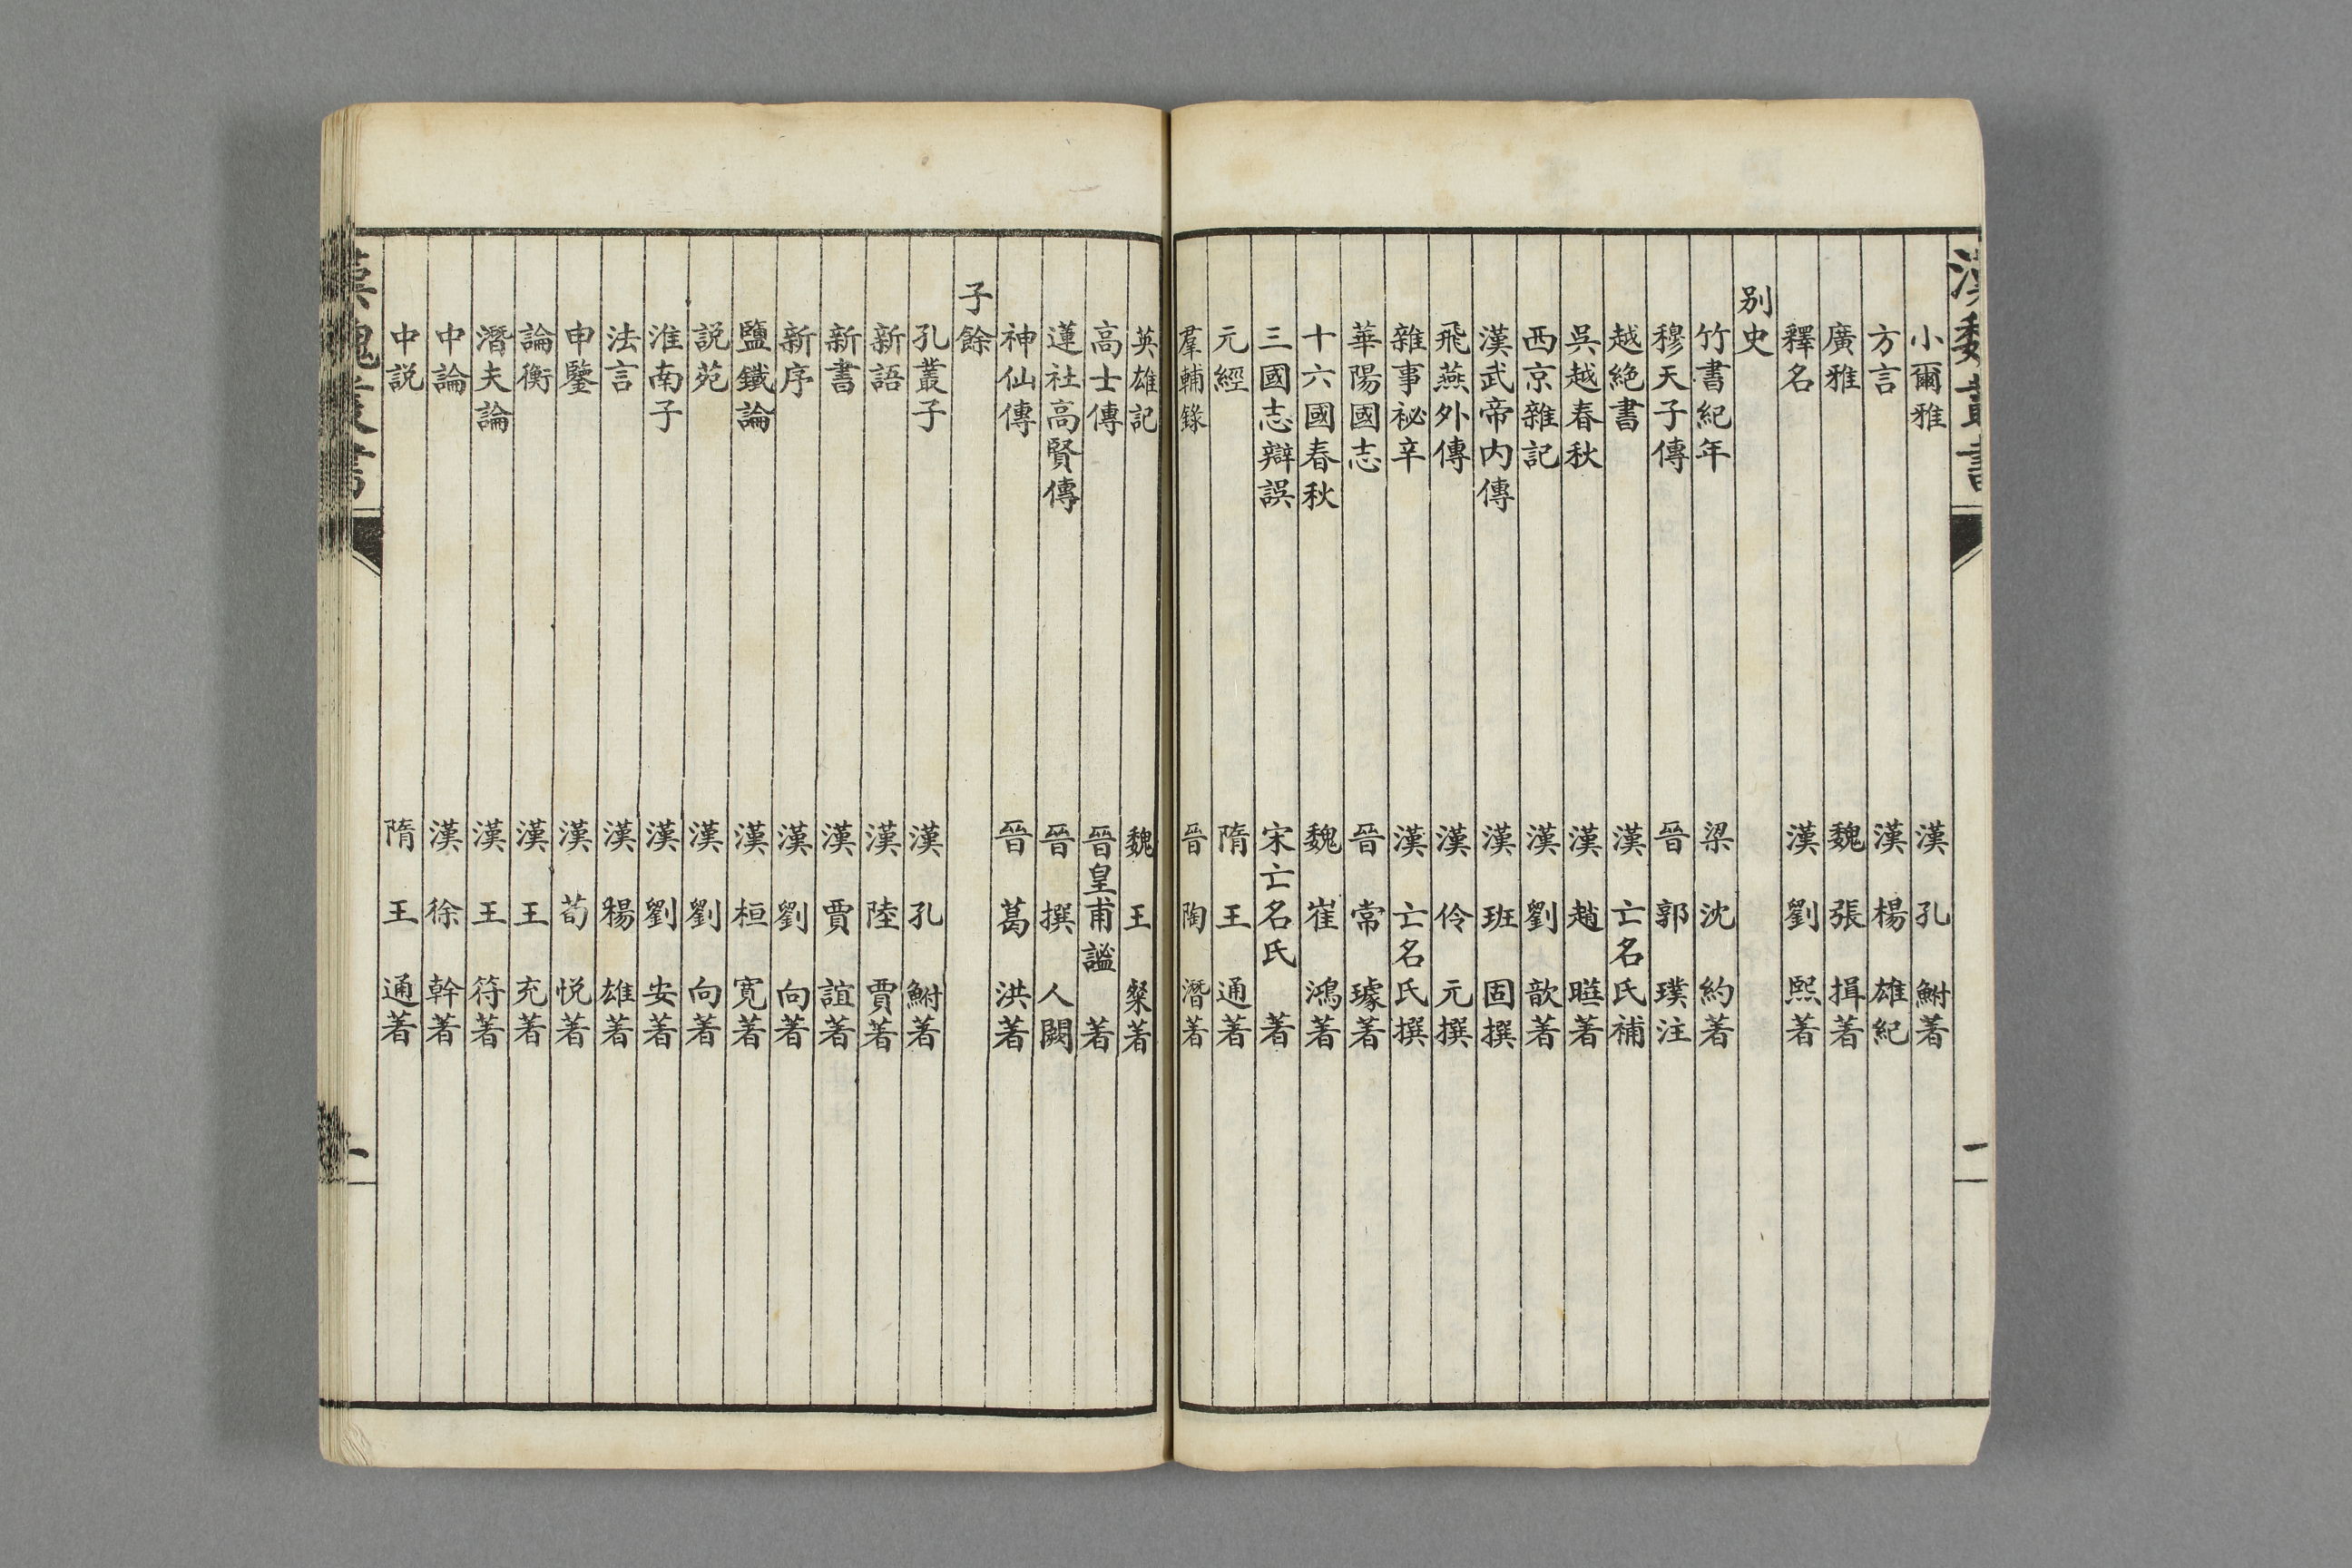 漢魏叢書
小爾雅 漢孔鮒著
方言 漢楊雄紀
廣雅 魏張揖著
釋名 漢劉熙著
别史
竹書紀年 梁沈約著
穆天子傳 晉郭璞注
越絶書 漢亡名氏補
吳越春秋 漢趙曄著
西京雜記 漢劉歆著
漢武帝内傳 漢班固撰
飛燕外傳 漢伶元撰
雜事祕辛 漢亡名氏撰
華陽國志 晉常璩著
十六國春秋 魏崔鴻著
三國志辯誤 宋亡名氏著
元經 隋王通著
羣輔錄 晉陶潛著
英雄記 魏王粲著
高士傳 晉皇甫謐著
蓮社高賢傳 晉撰人闕
神仙傳 晉葛洪著
子餘
孔叢子 漢孔鮒著
新語 漢陸賈著
新書 漢賈誼著
新序 漢劉向著
鹽鐵論 漢桓寬著
説苑 漢劉向著
淮南子 漢劉安著
法言 漢楊雄著
申鑒 漢荀悦著
論衡 漢王充著
潛夫論 漢王符著
中論 漢徐幹著
中説 隋王通著
漢魏叢書